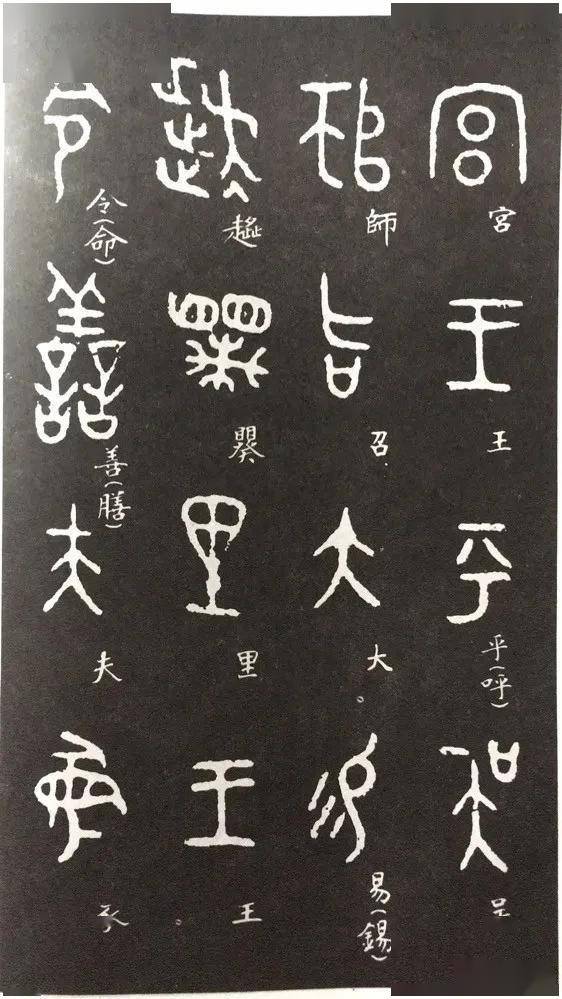 宮王乎(呼)
師召大。易(錫)
里王。
令(命)善(膳)夫